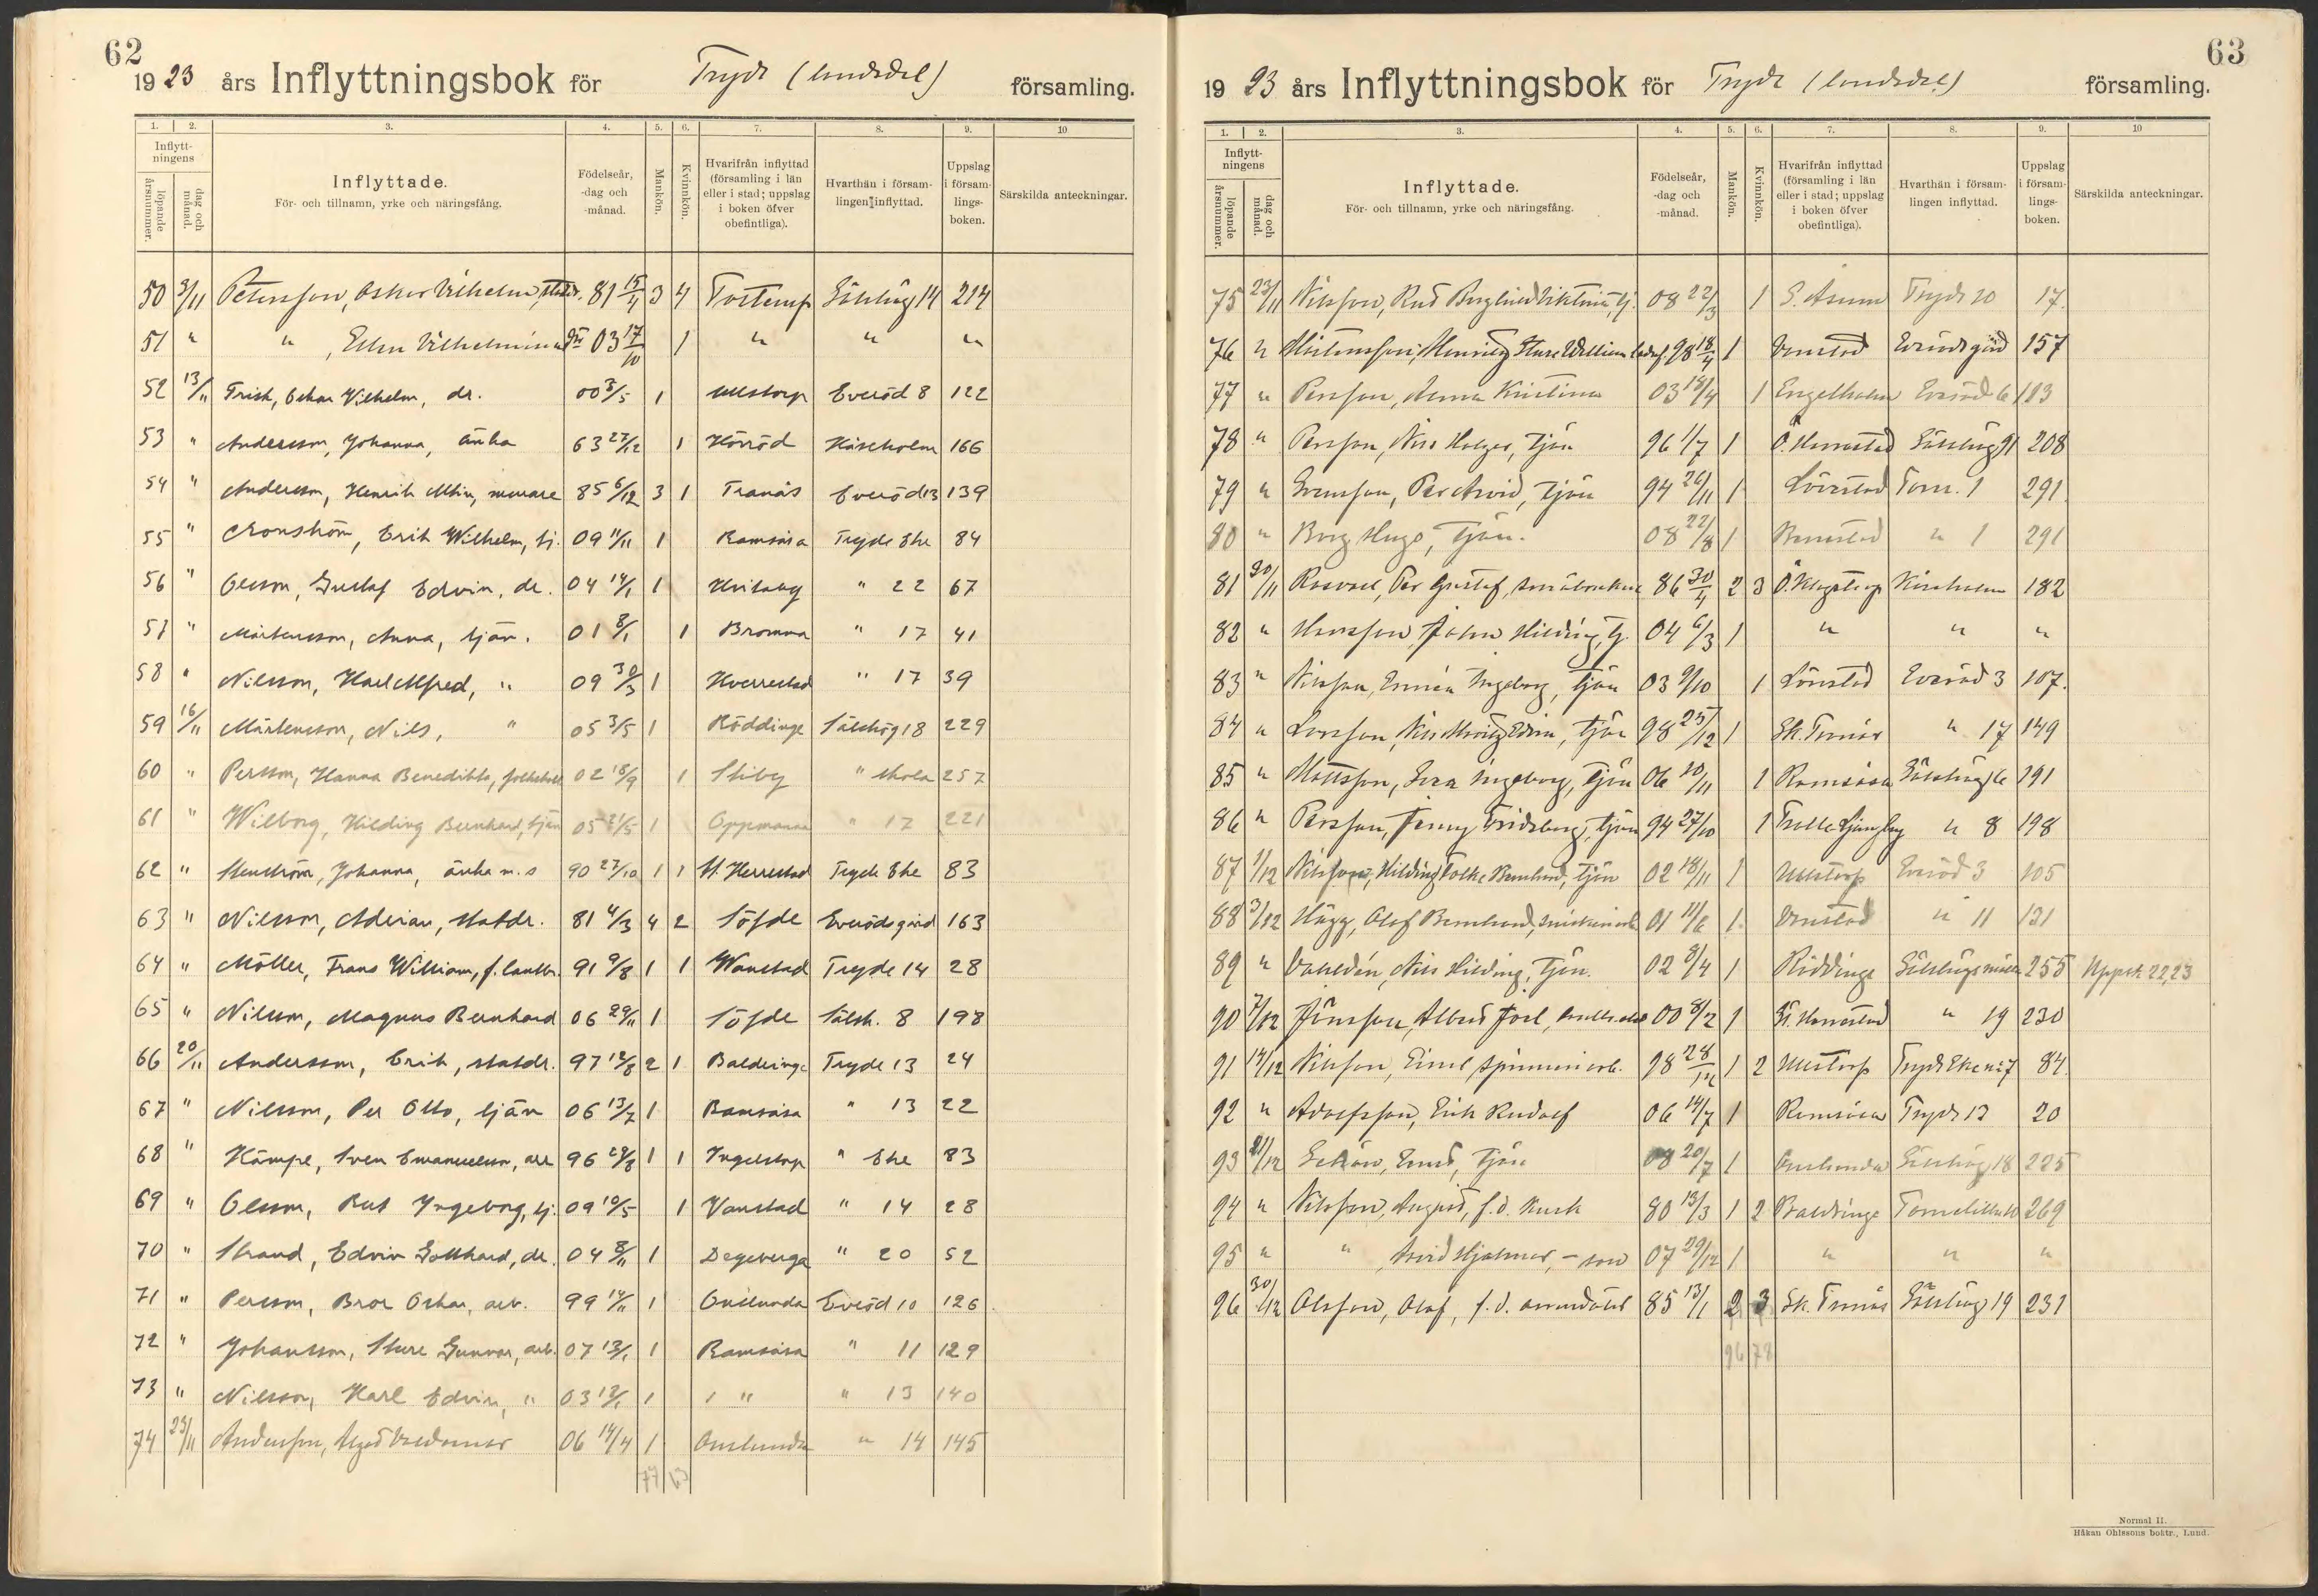 62
1923 års Inflyttningsbok för Tryde (landsdel) församling.
1. 2. 3. 4. 5. 6. 7. 8. 9. 10
Inflyttningens
löpande årsnummer.
dag och månad.
Inflyttade.
För- och tillnamn, yrke och näringsfång.
Födelseår, -dag och -månad.
Mankön.
Kvinnkön.
Hvarifrån inflyttad (församling i län eller i stad; uppslag i boken öfver obefintliga).
Hvarthän i församlingen inflyttad.
Uppslag i församlingsboken.
Särskilda anteckningar.
50 3/11 Petersson, Oskar Vilhelm, statdr. 81 15/4 3 4 Tosterup Sälshög 14 214
51 " " , Ellen Vilhelmina 03 17/10 1 " " "
52 13/11 Frisk, Oskar Vilhelm, dr. 00 3/5 1 Ullstorp Everöd 8 122
53 " Andersson, Johanna, änka 63 27/12 1 Hörröd Kåseholm 166
54 " Andersson, Henrik Albin, murare 85 6/12 3 1 Tranås Everöd 13 139
55 " Cronström, Erik Wilhelm, tj. 09 11/11 1 Ramsåsa Tryde Ehe 84
56 " Olsson, Gustaf Edvin, dr. 04 14/1 1 Hvitaby " 22 67
57 " Mårtensson, Anna, tjän. 01 8/1 1 Bromma " 17 41
58 " Nilsson, Karl Alfred, " 09 30/3 1 Hverrestad " 17 39
59 16/11 Mårtensson, Nils, " 05 3/5 1 Röddinge Sälshög 18 229
60 " Persson, Hanna Benedikta, folkskol. 02 18/9 1 Stiby " skola 257
61 " Wilborg, Hilding Bernhard, tjän 05 21/5 1 Oppmanna " 17 221
62 " Stenström, Johanna, änka m. s 90 27/10 1 1 St. Herrestad Tryde Ehe 83
63 " Nilsson, Adrian, statdr. 81 4/3 4 2 Söfde Everödsgård 163
64 " Möller, Frans William, f. lantbr. 91 9/8 1 1 Wanstad Tryde 14 28
65 " Nilsson, Magnus Bernhard 06 29/11 1 Söfde Sälsh. 8 198
66 20/11 Andersson, Erik, statdr. 97 12/8 2 1 Baldringe Tryde 13 24
67 " Nilsson, Per Otto, tjän 06 13/7 1 Ramsåsa " 13 22
68 " Kämpe, Sven Emanuelson, arr 96 28/8 1 1 Ingelstorp " Ehe 83
69 " Olsson, Rut Ingeborg, tj. 09 10/5 1 Vanstad " 14 28
70 " Strand, Edvin Gotthard, dr. 04 8/11 1 Degeberga " 20 52
71 " Persson, Bror Oskar, arb. 99 14/11 1 Onslunda Everöd 10 126
72 " Johansson, Sture Gunnar, arb. 07 13/1 1 Ramsåsa " 11 129
73 " Nilsson, Karl Edvin, " 03 12/1 1 " " 13 140
74 23/11 Andersson, Algot Valdemar 06 14/4 1 Onslunda " 14 145
77 63
63
1923 års Inflyttningsbok för Tryde (landsdel) församling.
1. 2. 3. 4. 5. 6. 7. 8. 9. 10
Inflyttningens
löpande årsnummer.
dag och månad.
Inflyttade.
För- och tillnamn, yrke och näringsfång.
Födelseår, -dag och -månad.
Mankön.
Kvinnkön.
Hvarifrån inflyttad (församling i län eller i stad; uppslag i boken öfver obefintliga).
Hvarthän i församlingen inflyttad.
Uppslag i församlingsboken.
Särskilda anteckningar.
75 23/11 Nilsson, Rut Berglind Viktoria, tj. 08 22/3 1 S. Åsum Tryde 20 17
76 " Mårtensson, Henning Sture William 98 18/4 1 Vanstad Everödsgård 157
77 " Persson, Anna Kristina 03 18/4 1 Engelholm Everöd 6 113
78 " Persson, Nils Holger, tjän 96 1/7 1 Ö. Herrestad Sälshög 11 208
79 " Svensson, Per Arvid, tjän 94 26/11 1 Löverstad Tom. 1 291
80 " Borg Hugo, tjän. 08 22/8 1 Benestad " 1 291
81 30/11 Rosvall, Per Gustaf, småbrukare 86 30/4 2 3 Ö. Klagstorp Kåseholm 182
82 " Hansson John Hilding, tj. 04 6/3 1 " " "
83 " Nilsson, Emma Ingeborg, tjän 03 9/10 1 Lövestad Everöd 3 107.
84 " Larsson, Nils Moritz Edvin, tjän 98 25/12 1 Sk. Tranås " 17 149
85 " Mattsson, Svea Ingeborg, tjän 06 10/11 1 Ramsåsa Sälshög 6 191
86 " Persson, Jenny Fridsborg, tjän 94 27/10 1 Trolle Ljungby " 8 198
87 1/12 Nilsson, Hilding Folke Bernhard, tjän 02 18/11 1 Ullstorp Everöd 3 105
88 3/12 Hägg, Olof Bernhard, 01 11/6 1 Vanstad " 11 131
89 " Valldén, Nils Hilding, tjän. 02 8/4 1 Röddinge Sälshögsmölla 255 Uppsk. 22, 23
90 7/12 Jönsson, Albert Joel, 00 8/2 1 St. Herrestad " 19 230
91 14/12 Nilsson, Emil, spinneriarb. 98 28/12 1 2 Ullstorp Tryde Ehe nr 7 84
92 " Adolfsson, Erik Rudolf 06 14/7 1 Ramsåsa Tryde 12 20
93 21/12 Ernst, tjän 08 20/7 1 Onslunda Sälshög 18 225
94 " Nilsson, August, f.d. kusk 80 13/3 1 2 Baldringe Tomelilla 10 269
95 " " , Arvid Hjalmar, - son 07 29/12 1 " " "
96 30/12 Olsson, Olof, f. d. arrendator 85 13/1 2 3 Sk. Tranås Sälshög 19 231
96 78
Normal II.
Håkan Ohlssons boktr., Lund.